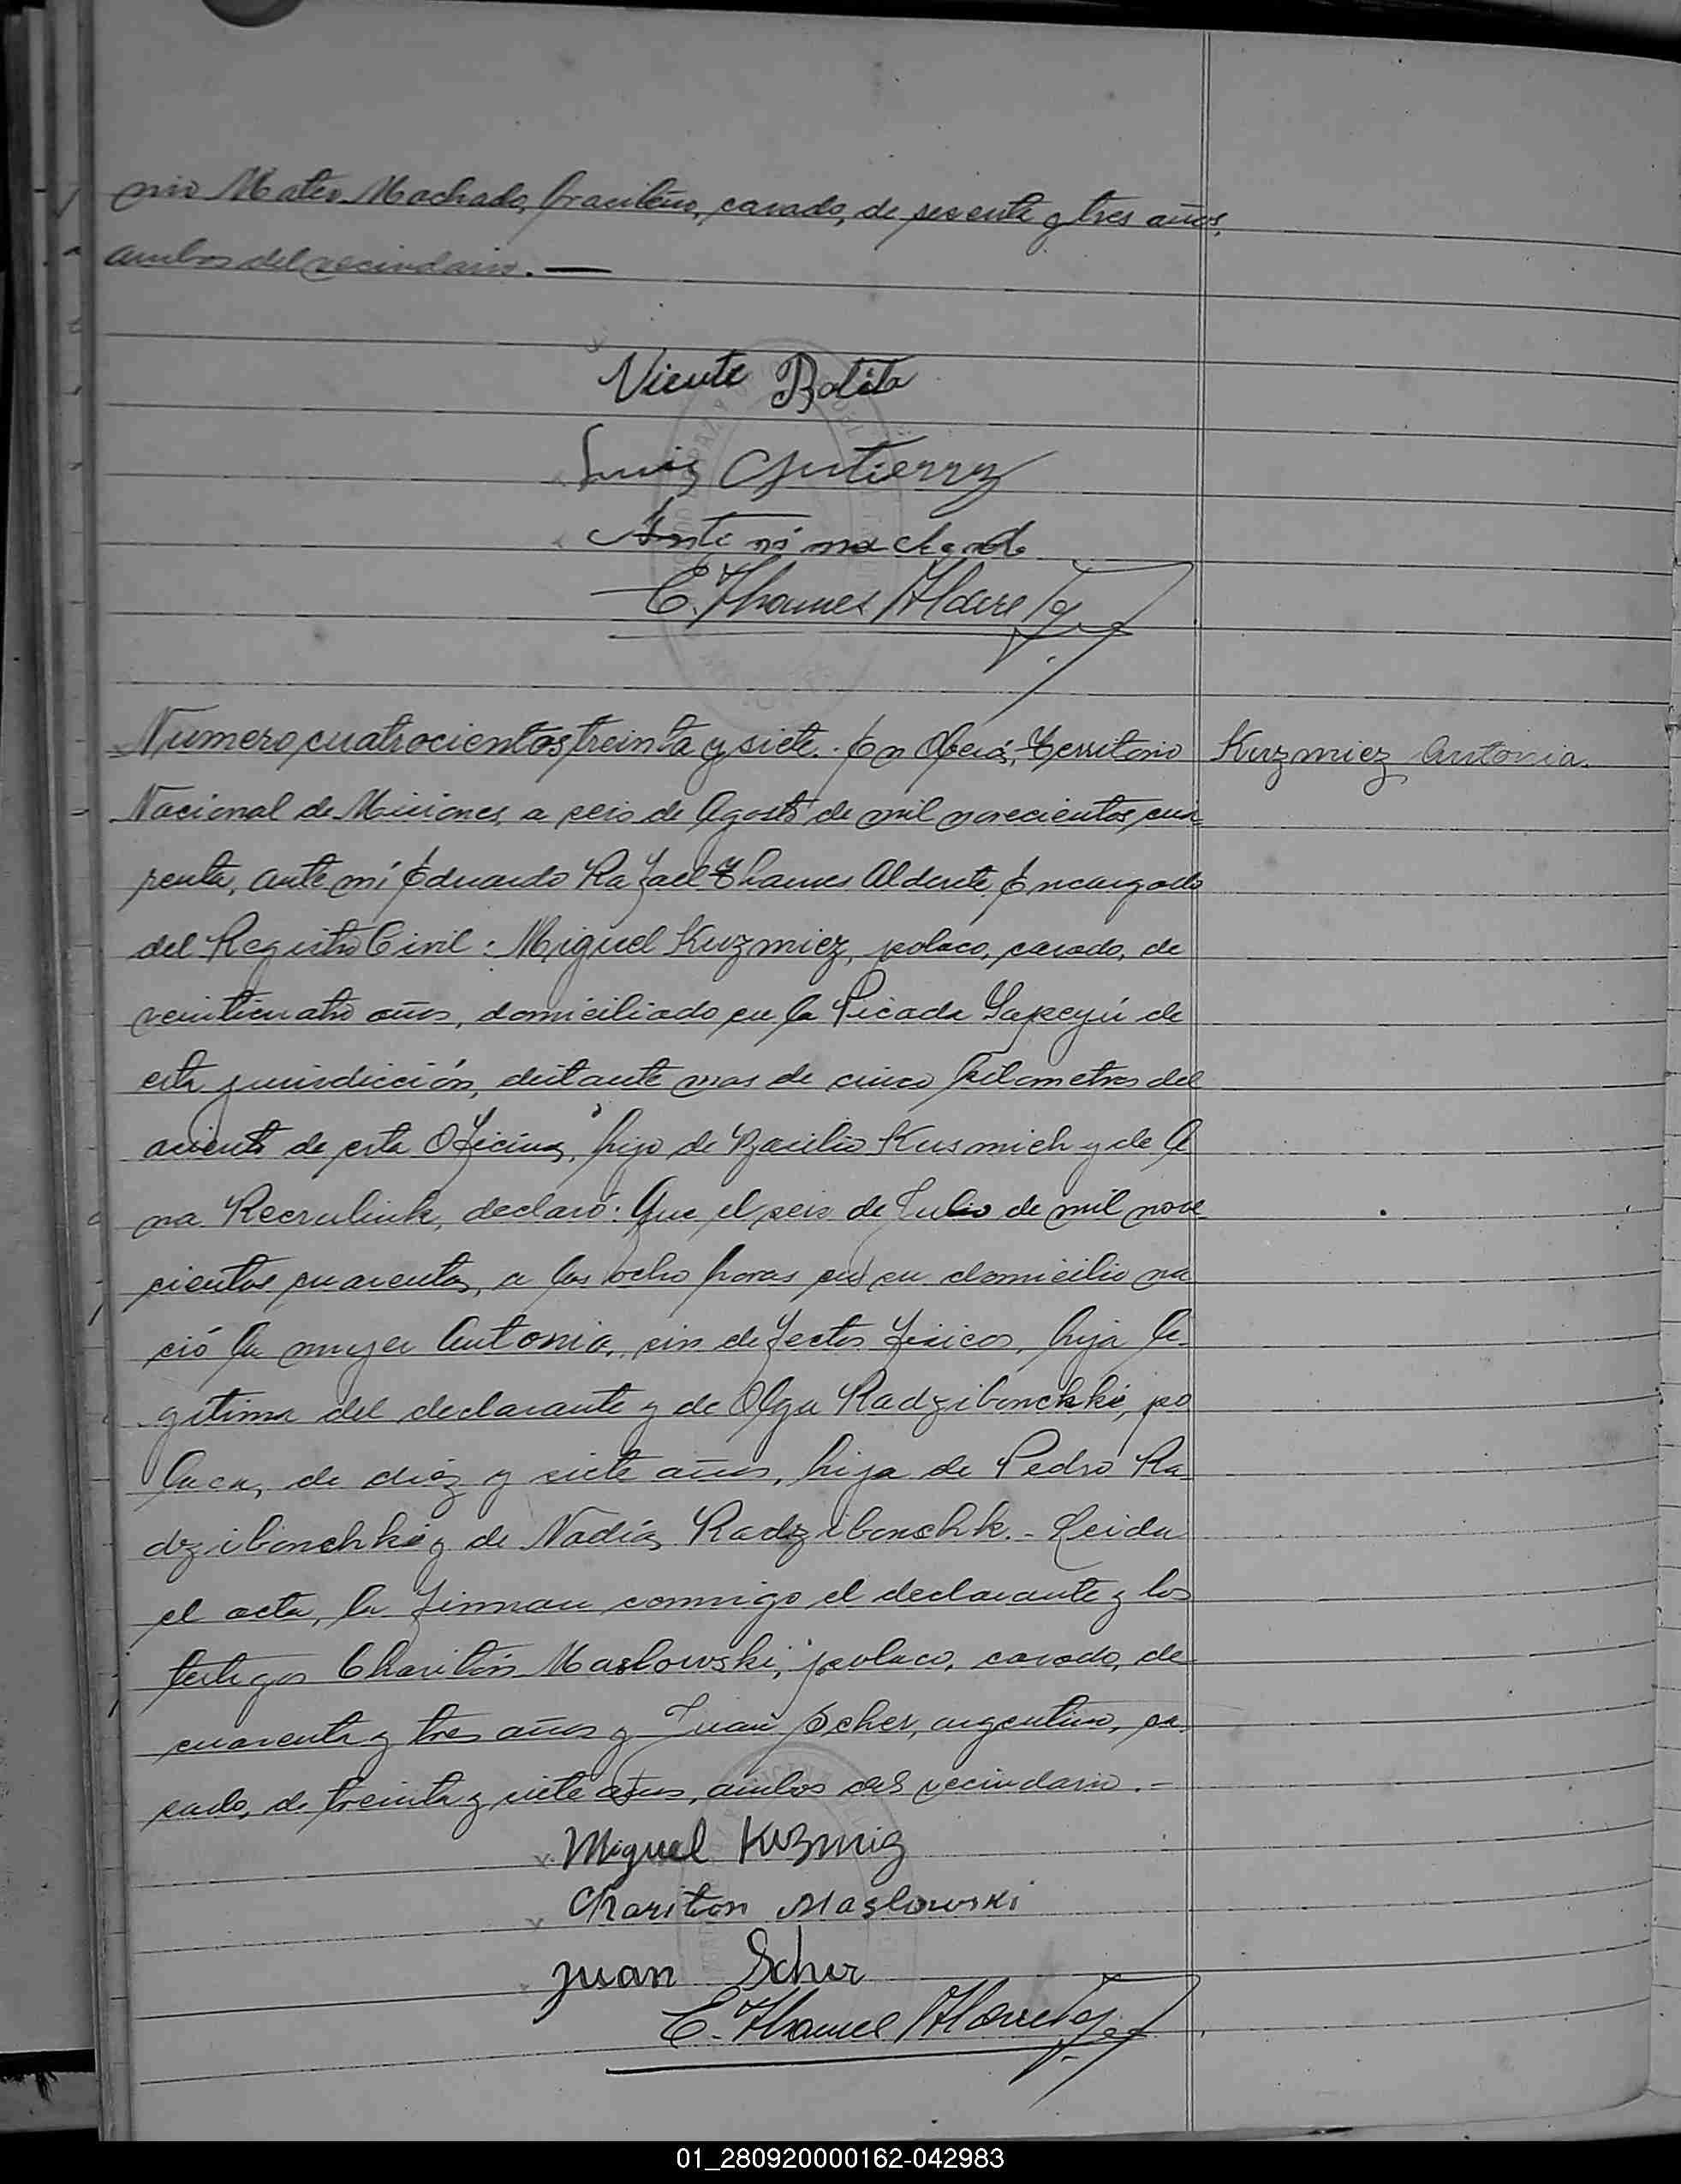 nio Mateo Machado, brasileño, casado, de sesenta y tres años,
ambos del vecindario. —
Vicente Botita
Luis Gutierrez
Antonio machado
E. Thames Alderete
Numero cuatrocientos treinta y siete. En Oberá, Territorio
Kuzmiez Antonia.
Nacional de Misiones, a seis de Agosto de mil novecientos cua-
renta, ante mí Eduardo Rafael Thames Alderete Encargado
del Registro Civil: Miguel Kuzmiez, polaco, casado, de
veinticuatro años, domiciliado en la Picada Yapeyú de
esta jurisdicción, distante mas de cinco kilometros del
asiento de esta Oficina, hijo de Bacilio Kusmich y de A
na Recrulink, declaró: Que el seis de Julio de mil nove
cientos cuarenta, a las ocho horas en su domicilio na
ció la mujer Antonia, sin defectos fisicos, hija le-
gitima del declarante y de Olga Radzibonchki, po
laca, de diez y siete años, hija de Pedro Ra
dzibonchki y de Nadia Radzibonschk. - Leida
el acta, la firman conmigo el declarante y los
testigos Charitón Maslowski, polaco, casado, de
cuarenta y tres años y Juan Scher, argentino, ca
sado, de treinta y siete años, ambos del vecindario. -
Miguel Kuzmiz
Chariton Maslowski
Juan Scher
E. Thames Alderete
01_280920000162-042983